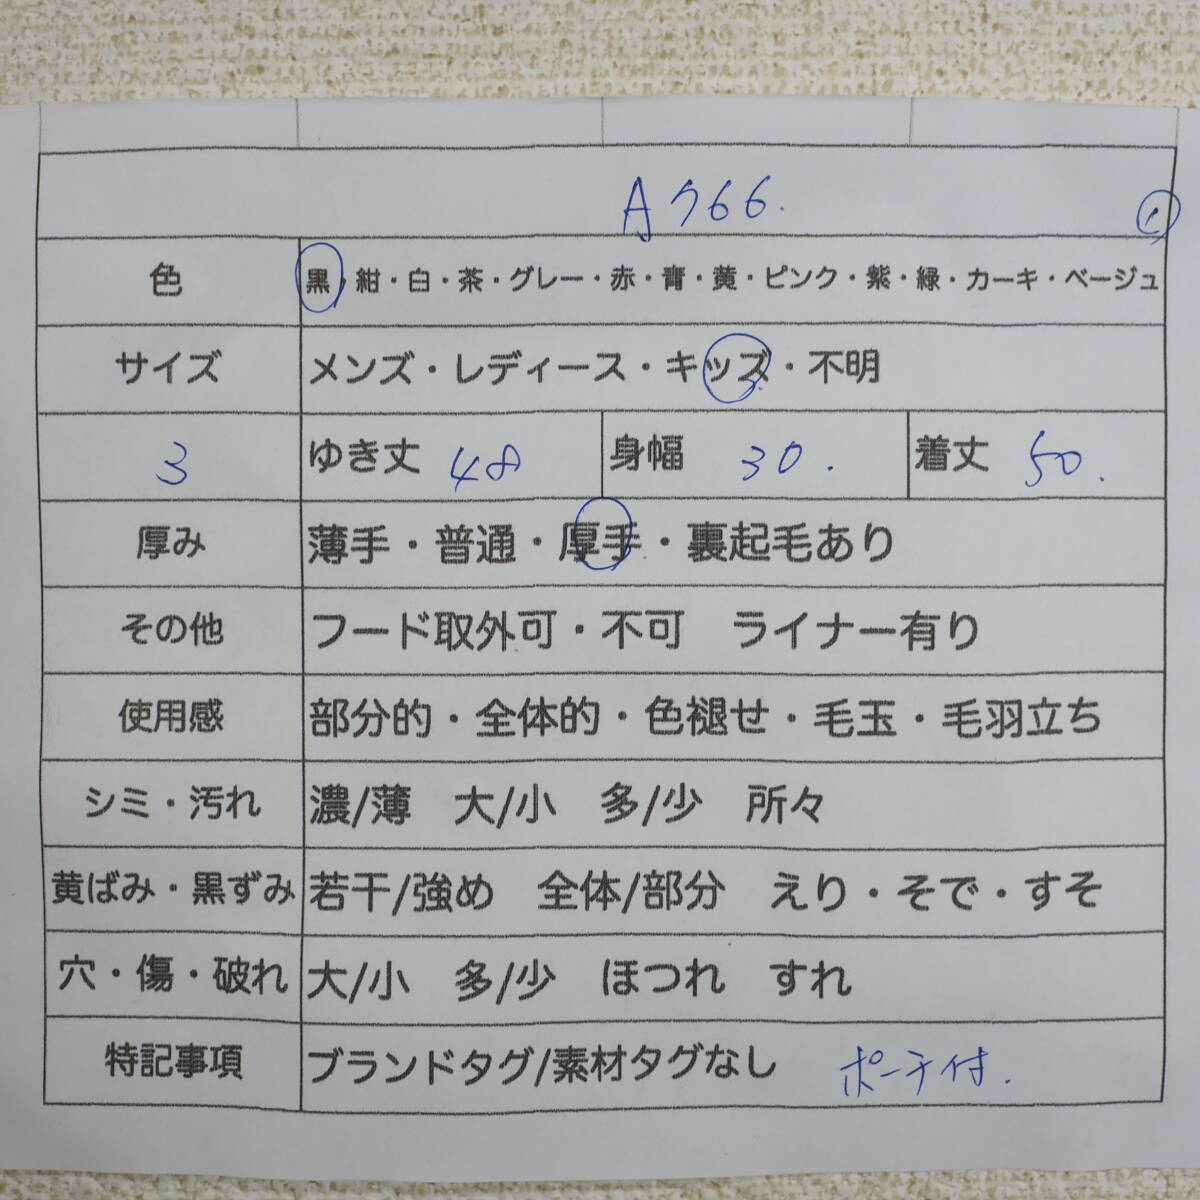 A766.
色 黒・紺・白・茶・グレー・赤・青・黄・ピンク・紫・緑・カーキ・ベージュ
サイズ メンズ・レディース・キッズ・不明
3 ゆき丈 48 身幅 30. 着丈 50.
厚み 薄手・普通・厚手・裏起毛あり
その他 フード取外可・不可 ライナー有り
使用感 部分的・全体的・色褪せ・毛玉・毛羽立ち
シミ・汚れ 濃/薄 大/小 多/少 所々
黄ばみ・黒ずみ 若干/強め 全体/部分 えり・そで・すそ
穴・傷・破れ 大/小 多/少 ほつれ すれ
特記事項 ブランドタグ/素材タグなし ポーチ付.